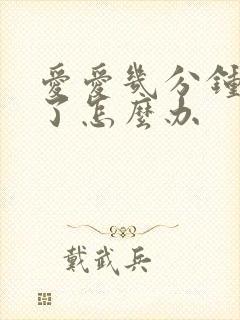 愛愛幾分鍾
了怎麼办
戴武兵